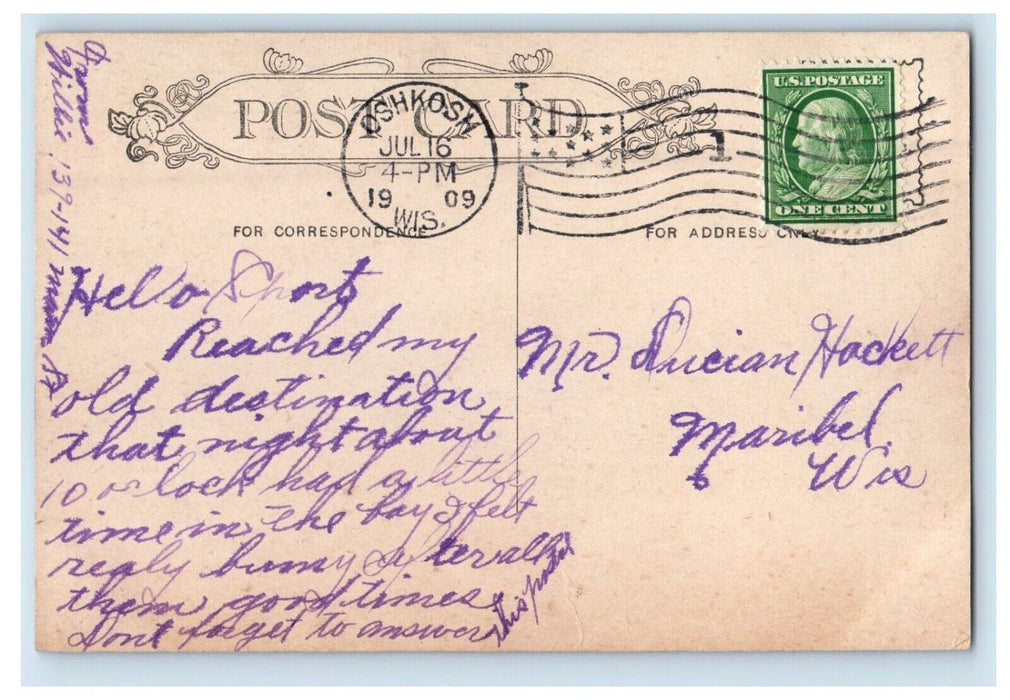 POST CARD
OSHKOSH
JUL 16
4-PM
19 09
WIS.
1
U.S. POSTAGE
ONE CENT
FOR CORRESPONDENCE
FOR ADDRESS ONLY
Hello Sport
Reached my
old destination
that night about
10 oclock had a little
time in the hay I felt
realy bumy after all
them good times.
Dont forget to answer
this postal
Mr. Lucian Hackett
Maribel,
Wis
139-141 Main